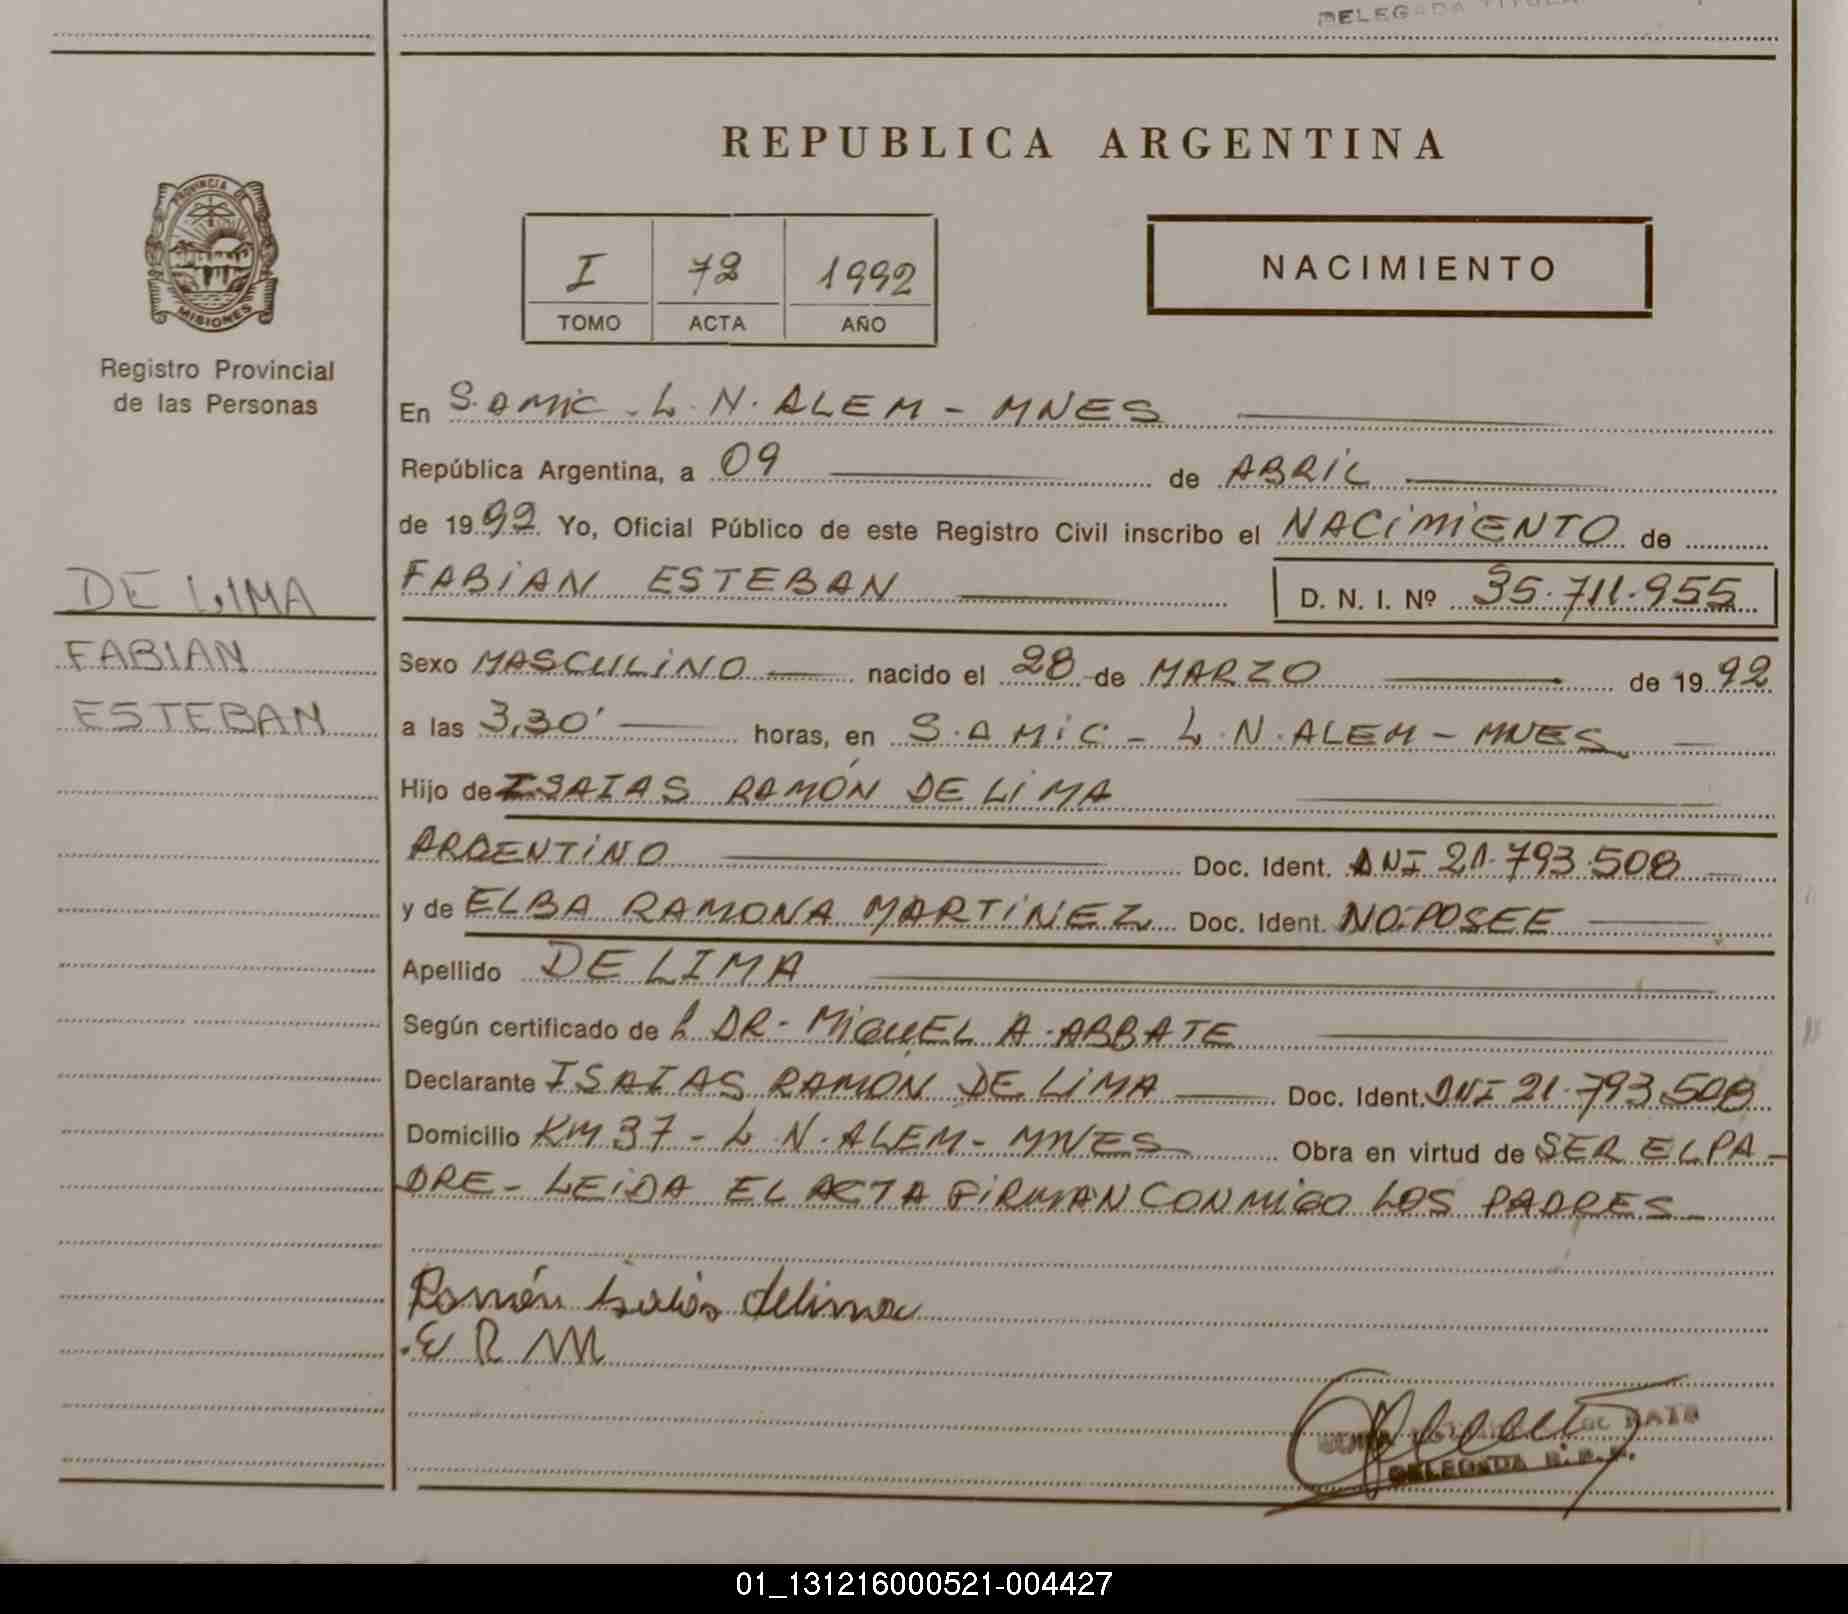 DELEGADA TITULA
REPUBLICA ARGENTINA
PROVINCIA DE
MISIONES
Registro Provincial
de las Personas
I 72 1992
TOMO ACTA AÑO
NACIMIENTO
En S.AMIC - L.N. ALEM - MNES
República Argentina, a 09 de ABRIL
de 1992 Yo, Oficial Público de este Registro Civil inscribo el NACIMIENTO de
FABIAN ESTEBAN D. N. I. Nº 35.711.955
DE LIMA
FABIAN
ESTEBAN
Sexo MASCULINO nacido el 28 de MARZO de 1992
a las 3,30' horas, en S.AMIC - L.N. ALEM - MNES
Hijo de ISAIAS RAMÓN DE LIMA
ARGENTINO Doc. Ident. DNI 21.793.508
y de ELBA RAMONA MARTINEZ Doc. Ident. NO POSEE
Apellido DE LIMA
Según certificado de DR - MIGUEL A. ABBATE
Declarante ISAIAS RAMON DE LIMA Doc. Ident. DNI 21.793.508
Domicilio KM 37 - L.N. ALEM - MNES Obra en virtud de SER EL PA-
DRE - LEIDA EL ACTA FIRMAN CONMIGO LOS PADRES
Ramón Isaías delima
E R M
DELEGADA R.P.P.
01_131216000521-004427